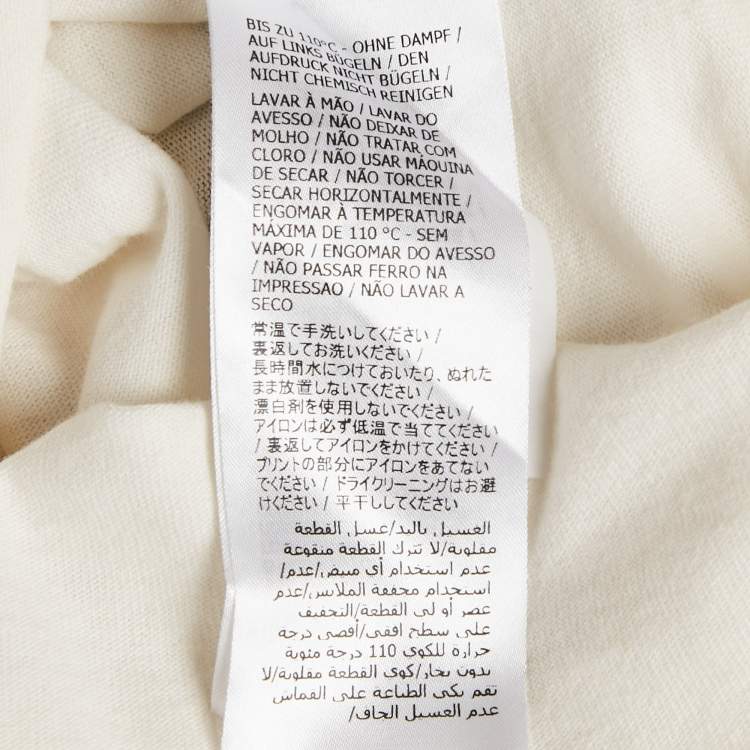 BIS ZU 110°C - OHNE DAMPF /
AUF LINKS BÜGELN / DEN
AUFDRUCK NICHT BÜGELN /
NICHT CHEMISCH REINIGEN
LAVAR À MÃO / LAVAR DO
AVESSO / NÃO DEIXAR DE
MOLHO / NÃO TRATAR COM
CLORO / NÃO USAR MÁQUINA
DE SECAR / NÃO TORCER /
SECAR HORIZONTALMENTE /
ENGOMAR À TEMPERATURA
MÁXIMA DE 110 °C - SEM
VAPOR / ENGOMAR DO AVESSO
/ NÃO PASSAR FERRO NA
IMPRESSAO / NÃO LAVAR A
SECO
常温で手洗いしてください /
裏返してお洗いください /
長時間水につけておいたり、ぬれた
まま放置しないでください /
漂白剤を使用しないでください /
アイロンは必ず低温で当ててください
/ 裏返してアイロンをかけてください /
プリントの部分にアイロンをあてない
でください / ドライクリーニングはお避
けください / 平干ししてください
الغسيل باليد/غسل القطعة
مقلوبة/لا تترك القطعة منقوعة
عدم استخدام أي مبيض/عدم/
استخدام مجففة الملابس/عدم
عصر أو لي القطعة/التجفيف
على سطح افقي/أقصى درجة
حراره للكوي 110 درجة مئوية
بدون بخار/كوي القطعة مقلوبة /
لا تقم بكي الطباعة على القماش
عدم الغسيل الجاف/